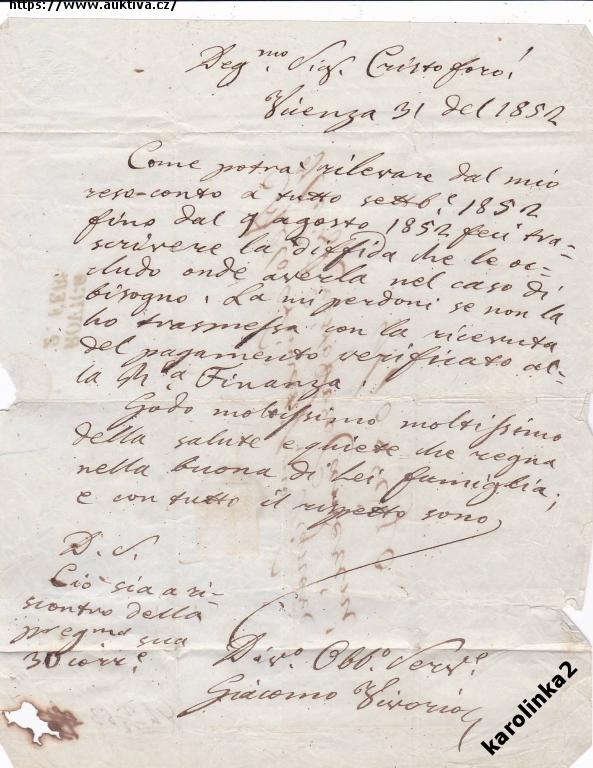 https://www.auktiva.cz/
Deg.mo Sig.r Cristoforo!
Vicenza 31 del 1852
Come potrà rilevare dal mio
reso-conto a tutto settb.e 1852
fino dal 9 agosto 1852 feci tra-
scrivere la diffida che le ac-
cludo onde avella nel caso di
bisogno. La mi perdoni se non la
ho trasmessa con la ricevuta
del pagamento verificato al-
la R.a Finanza.
Godo moltissimo moltissimo
della salute e quiete che regna
nella buona di Lei famiglia;
e con tutto il rispetto sono
D. S.
Ciò sia a ri-
scontro della
pregma sua
30 corr.e
Div.o Obb.o Serv.e
Giacomo
karolinka2